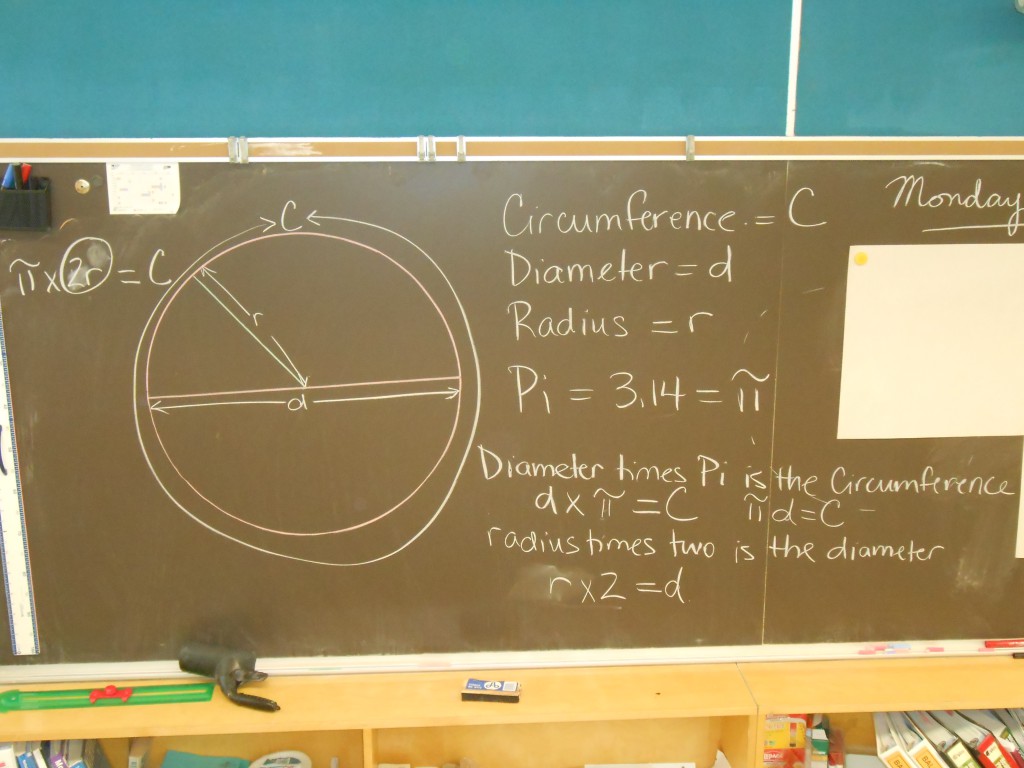 Monday
π x 2r = C
C
r
d
Circumference = C
Diameter = d
Radius = r
Pi = 3.14 = π
Diameter times Pi is the Circumference
d x π = C π d = C
radius times two is the diameter
r x 2 = d